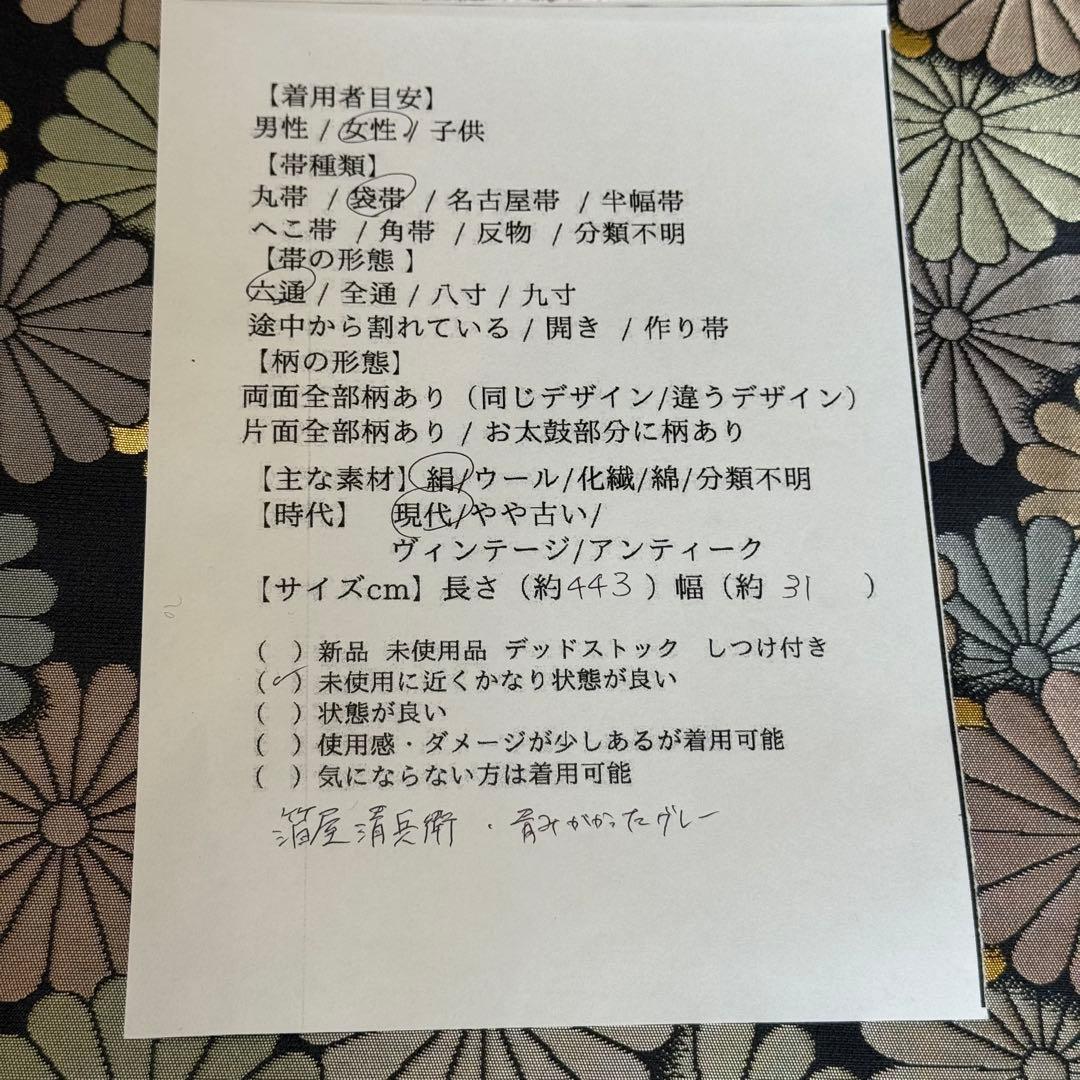 【着用者目安】
男性 / 女性 / 子供
【帯種類】
丸帯 / 袋帯 / 名古屋帯 / 半幅帯
へこ帯 / 角帯 / 反物 / 分類不明
【帯の形態 】
六通 / 全通 / 八寸 / 九寸
途中から割れている / 開き / 作り帯
【柄の形態】
両面全部柄あり（同じデザイン/違うデザイン）
片面全部柄あり / お太鼓部分に柄あり
【主な素材】絹/ウール/化繊/綿/分類不明
【時代】 現代/やや古い/
ヴィンテージ/アンティーク
【サイズcm】長さ（約443）幅（約 31 ）
( ) 新品 未使用品 デッドストック しつけ付き
(✓) 未使用に近くかなり状態が良い
( ) 状態が良い
( ) 使用感・ダメージが少しあるが着用可能
( ) 気にならない方は着用可能
箔屋清兵衛 ・ 青みがかったグレー